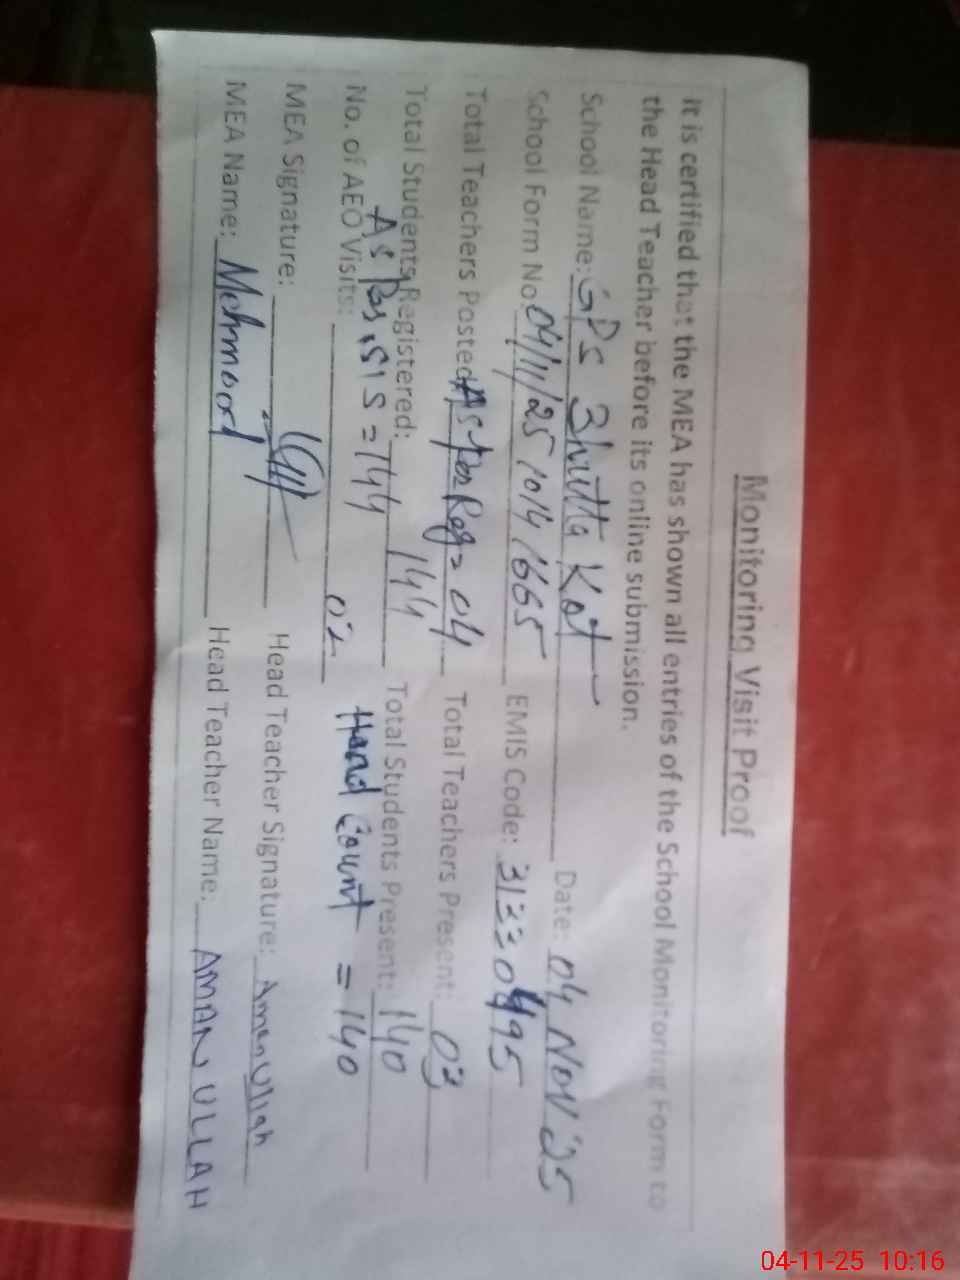 Monitoring Visit Proof
It is certified that the MEA has shown all entries of the School Monitoring Form to
the Head Teacher before its online submission.
School Name: GPS Bhutta Kot Date: 04 Nov 25
School Form No: 04/11/25 EMIS Code: 31330495
Total Teachers Posted: As per Reg = 04 Total Teachers Present: 03
Total Students Registered: 144 Total Students Present: 140
As Per SIS = 144 Head Count = 140
No. of AEO Visits: 02
MEA Signature: Head Teacher Signature: Aman Ullah
MEA Name: Mehmood Head Teacher Name: AMAN ULLAH
04-11-25 10:16